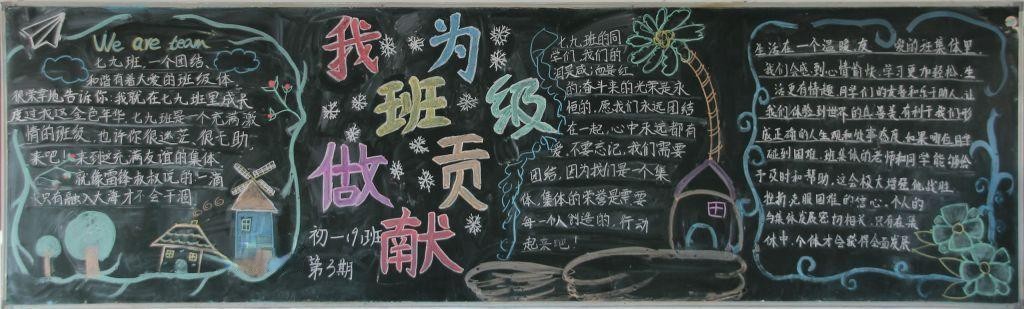 We are team
七九班,一个团结、
和谐有着大爱的班级体.
很荣幸地告诉你,我就在七九班里成长
度过我这金色年华.七九班是一个充满激
情的班级.也许你很迷茫、很无助,
来吧!来到这充满友谊的集体.
就像雷锋叔叔说的一滴
水只有融入大海才不会干涸
我为
班级
做贡
献
初一(9)班
第3期
七九班的同
学们,我们的
泪哭咸;汤是红
的;奋斗来的光荣是永
恒的.愿我们永远团结
在一起,心中永远都有
爱,不要忘记,我们需要
团结,因为我们是一个集
体,集体的荣誉是需要
每一个人创造的,行动
起来吧!
生活在一个温暖友爱的班集体里,
我们会感到心情愉快,学习更加轻松,生
活更有情趣.同学们的友爱和乐于助人,让
我们体验到世界的真善美,有利于我们形
成正确的人生观和处事态度.如果哪位同学
碰到困难,班集体的老师和同学能够给
于及时和帮助,这会极大增强他战胜
挫折克服困难的信心.个人的
与集体发展密切相关,只有在集
体中,个体才会获得全面发展